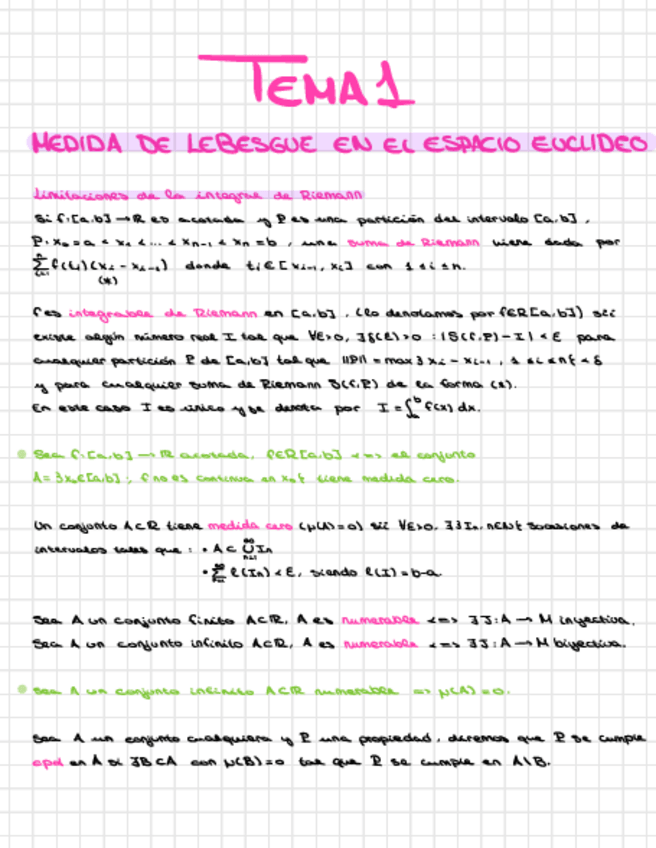 TEMA 1
MEDIDA DE LEBESGUE EN EL ESPACIO EUCLIDEO
Limitaciones de la integral de Riemann
Si f:[a,b] → ℝ es acotada y P es una partición del intervalo [a,b],
P: x₀ = a < x₁ < ... < xₙ₋₁ < xₙ = b, una suma de Riemann viene dada por
∑ f(tᵢ)(xᵢ - xᵢ₋₁) donde tᵢ ∈ [xᵢ₋₁, xᵢ] con 1 ≤ i ≤ n.
(*)
f es integrable de Riemann en [a,b], (lo denotamos por f∈R[a,b]) sii
existe algún número real I tal que ∀ε>0, ∃δ(ε)>0 : |S(f,P) - I| < ε para
cualquier partición P de [a,b] tal que ||P|| = max{xᵢ - xᵢ₋₁, 1 ≤ i ≤ n} < δ
y para cualquier suma de Riemann S(f,P) de la forma (*).
En este caso I es único y se denota por I = ∫ₐᵇ f(x) dx.
Sea f:[a,b] → ℝ acotada, f∈R[a,b] <=> el conjunto
A = {x₀∈[a,b]; f no es continua en x₀} tiene medida cero.
Un conjunto A⊂ℝ tiene medida cero (μ(A)=0) sii ∀ε>0, ∃{Iₙ, n∈ℕ} sucesiones de
intervalos tales que : • A ⊂ ⋃ₙ₌₁^∞ Iₙ
• ∑ₙ₌₁^∞ l(Iₙ) < ε, siendo l(I) = b-a.
Sea A un conjunto finito A⊂ℝ, A es numerable <=> ∃J: A → ℕ inyectiva.
Sea A un conjunto infinito A⊂ℝ, A es numerable <=> ∃J: A → ℕ biyectiva.
Sea A un conjunto infinito A⊂ℝ numerable => μ(A) = 0.
Sea A un conjunto cualquiera y P una propiedad, diremos que P se cumple
cpd en A si ∃B⊂A con μ(B)=0 tal que P se cumple en A\B.